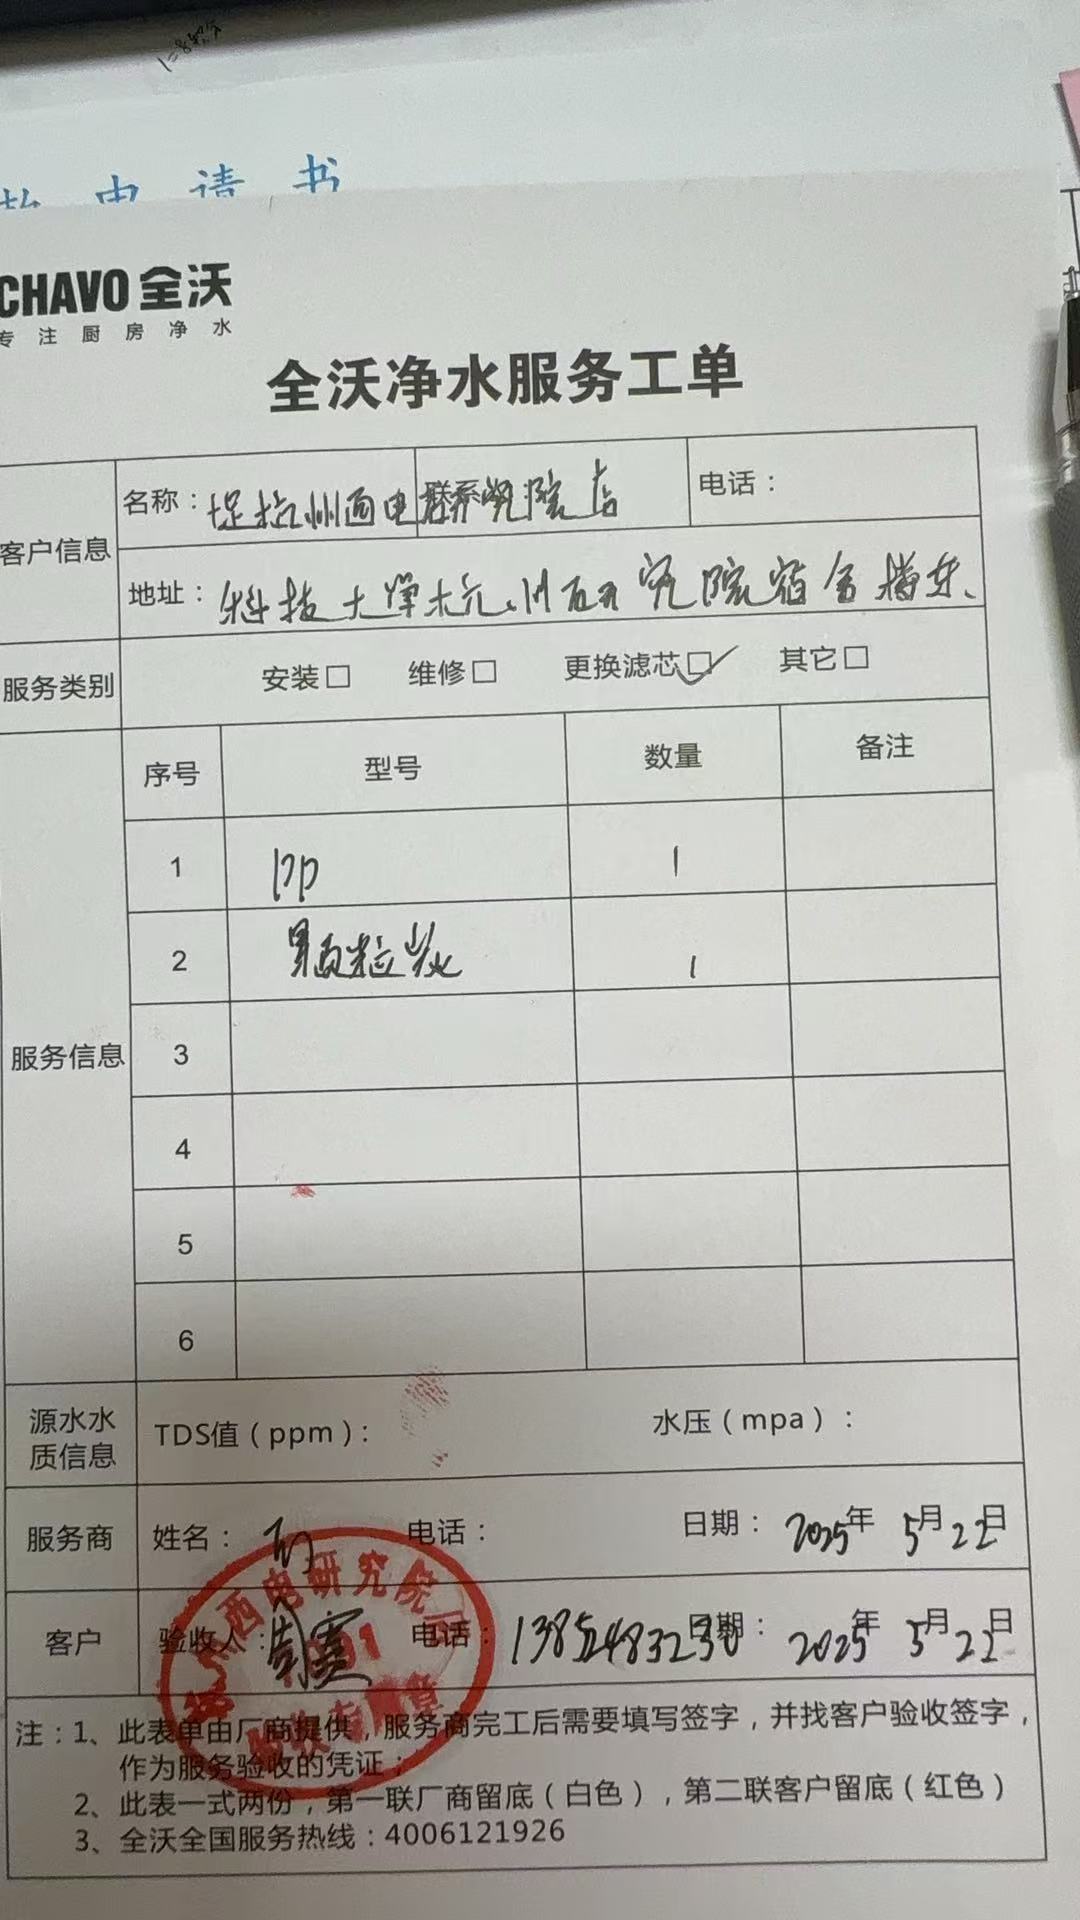 申请书
CHAVO 全沃
专注厨房净水
全沃净水服务工单
客户信息
名称：杭州西电研究院店
联系人：
电话：
地址：科技大学杭州研究院宿舍楼东
服务类别
安装□ 维修□ 更换滤芯☑ 其它□
服务信息
序号 型号 数量 备注
1 PP 1
2 颗粒炭 1
3
4
5
6
源水水质信息
TDS值（ppm）： 水压（mpa）：
服务商 姓名： 电话： 日期：2025年5月22日
客户 验收人： 电话：13852483230 日期：2025年5月22日
西电研究院
注：1、此表单由厂商提供，服务商完工后需要填写签字，并找客户验收签字，
作为服务验收的凭证；
2、此表一式两份，第一联厂商留底（白色），第二联客户留底（红色）
3、全沃全国服务热线：4006121926